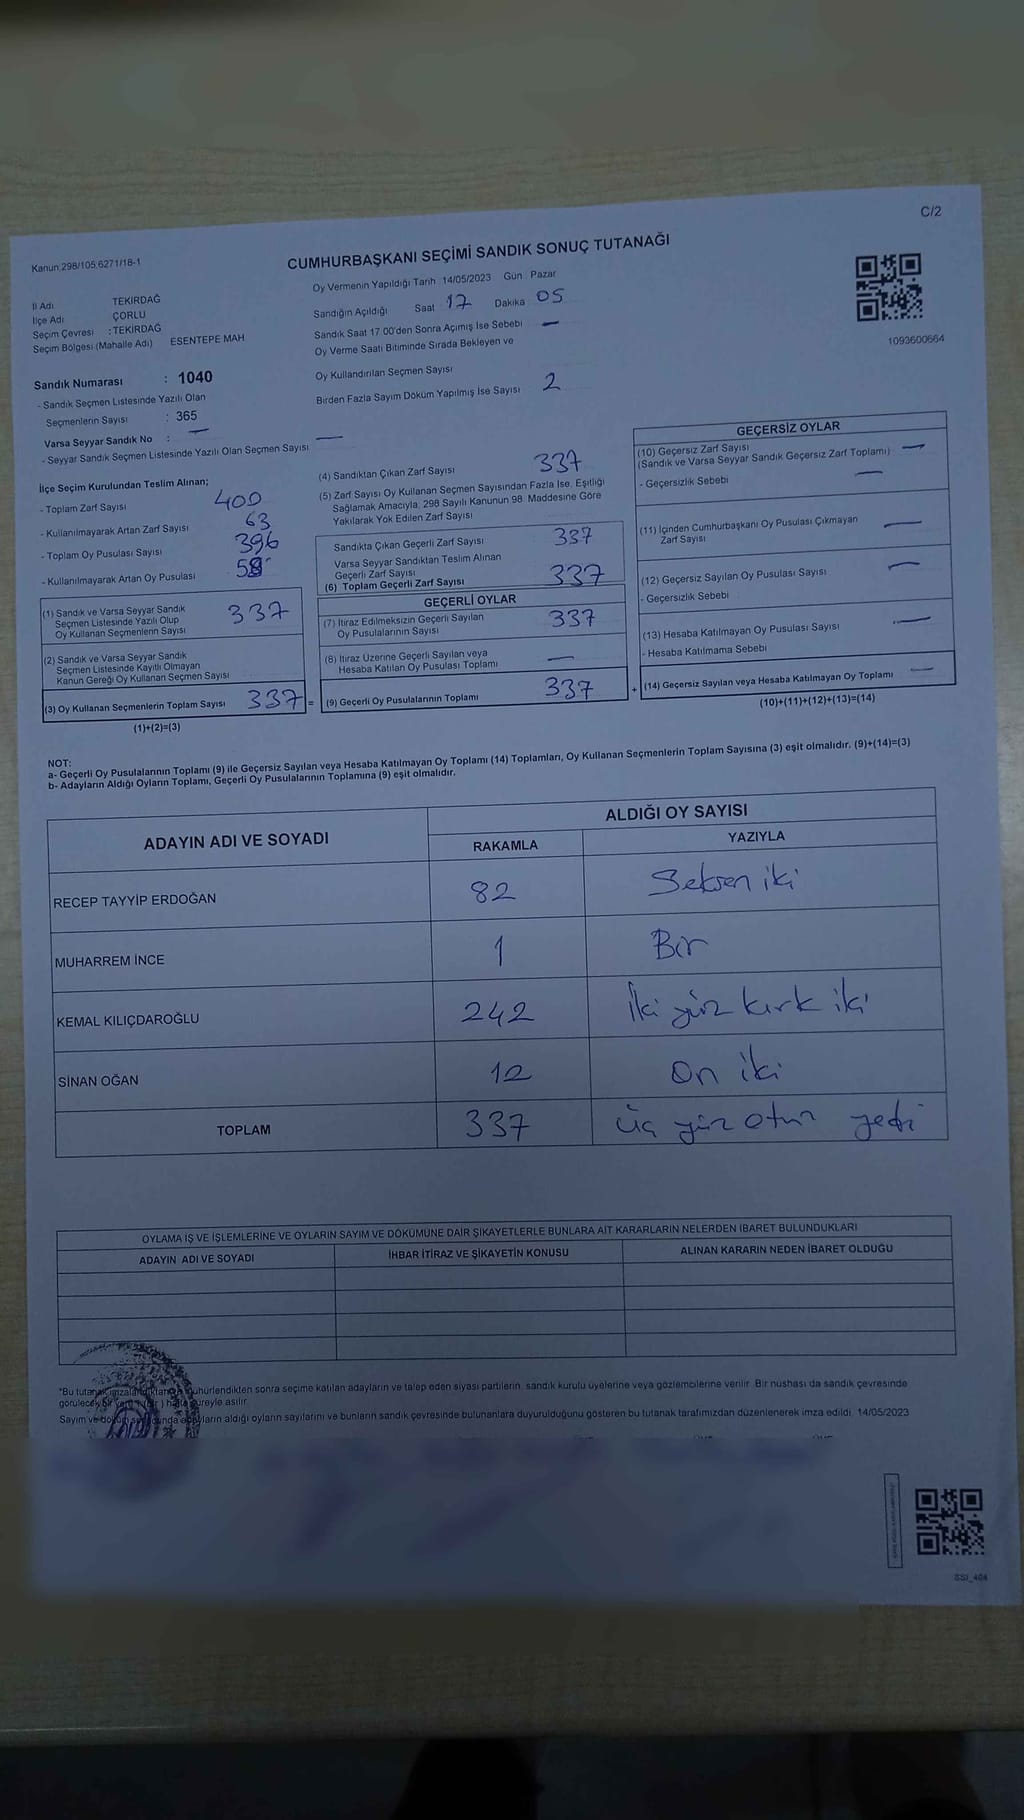 C/2
Kanun:298/105;6271/18-1
CUMHURBAŞKANI SEÇİMİ SANDIK SONUÇ TUTANAĞI
Oy Vermenin Yapıldığı Tarih 14/05/2023 Gün Pazar
İl Adı TEKİRDAĞ
İlçe Adı ÇORLU
Seçim Çevresi : TEKİRDAĞ
Seçim Bölgesi (Mahalle Adı) ESENTEPE MAH
Sandığın Açıldığı Saat 17 Dakika 05
Sandık Saat 17.00'den Sonra Açımış İse Sebebi —
Oy Verme Saati Bitiminde Sırada Bekleyen ve
Oy Kullandırılan Seçmen Sayısı
Birden Fazla Sayım Döküm Yapılmış İse Sayısı 2
1093600664
Sandık Numarası : 1040
- Sandık Seçmen Listesinde Yazılı Olan
Seçmenlerin Sayısı : 365
Varsa Seyyar Sandık No : —
- Seyyar Sandık Seçmen Listesinde Yazılı Olan Seçmen Sayısı —
İlçe Seçim Kurulundan Teslim Alınan;
- Toplam Zarf Sayısı 400
- Kullanılmayarak Artan Zarf Sayısı 63
- Toplam Oy Pusulası Sayısı 396
- Kullanılmayarak Artan Oy Pusulası
(1) Sandık ve Varsa Seyyar Sandık
Seçmen Listesinde Yazılı Olup
Oy Kullanan Seçmenlerin Sayısı 337
(2) Sandık ve Varsa Seyyar Sandık
Seçmen Listesinde Kayıtlı Olmayan
Kanun Gereği Oy Kullanan Seçmen Sayısı
(3) Oy Kullanan Seçmenlerin Toplam Sayısı 337 =
(1)+(2)=(3)
(4) Sandıktan Çıkan Zarf Sayısı 337
(5) Zarf Sayısı Oy Kullanan Seçmen Sayısından Fazla İse, Eşitliği
Sağlamak Amacıyla, 298 Sayılı Kanunun 98. Maddesine Göre
Yakılarak Yok Edilen Zarf Sayısı
Sandıkta Çıkan Geçerli Zarf Sayısı 337
Varsa Seyyar Sandıktan Teslim Alınan
Geçerli Zarf Sayısı
(6) Toplam Geçerli Zarf Sayısı 337
GEÇERLİ OYLAR
(7) İtiraz Edilmeksizin Geçerli Sayılan
Oy Pusulalarının Sayısı 337
(8) İtiraz Üzerine Geçerli Sayılan veya
Hesaba Katılan Oy Pusulası Toplamı —
(9) Geçerli Oy Pusulalarının Toplamı 337 +
GEÇERSİZ OYLAR
(10) Geçersiz Zarf Sayısı
(Sandık ve Varsa Seyyar Sandık Geçersiz Zarf Toplamı) —
- Geçersizlik Sebebi —
(11) İçinden Cumhurbaşkanı Oy Pusulası Çıkmayan
Zarf Sayısı —
(12) Geçersiz Sayılan Oy Pusulası Sayısı —
- Geçersizlik Sebebi
(13) Hesaba Katılmayan Oy Pusulası Sayısı —
- Hesaba Katılmama Sebebi
(14) Geçersiz Sayılan veya Hesaba Katılmayan Oy Toplamı —
(10)+(11)+(12)+(13)=(14)
NOT:
a- Geçerli Oy Pusulalarının Toplamı (9) ile Geçersiz Sayılan veya Hesaba Katılmayan Oy Toplamı (14) Toplamları, Oy Kullanan Seçmenlerin Toplam Sayısına (3) eşit olmalıdır. (9)+(14)=(3)
b- Adayların Aldığı Oyların Toplamı, Geçerli Oy Pusulalarının Toplamına (9) eşit olmalıdır.
ADAYIN ADI VE SOYADI ALDIĞI OY SAYISI
RAKAMLA YAZIYLA
RECEP TAYYİP ERDOĞAN 82 Seksen iki
MUHARREM İNCE 1 Bir
KEMAL KILIÇDAROĞLU 242 İki yüz kırk iki
SİNAN OĞAN 12 On iki
TOPLAM 337 üç yüz otuz yedi
OYLAMA İŞ VE İŞLEMLERİNE VE OYLARIN SAYIM VE DÖKÜMÜNE DAİR ŞİKAYETLERLE BUNLARA AİT KARARLARIN NELERDEN İBARET BULUNDUKLARI
ADAYIN ADI VE SOYADI İHBAR İTİRAZ VE ŞİKAYETİN KONUSU ALINAN KARARIN NEDEN İBARET OLDUĞU
*Bu tutanak imzalandıktan mühürlendikten sonra seçime katılan adayların ve talep eden siyasi partilerin sandık kurulu üyelerine veya gözlemcilerine verilir. Bir nüshası da sandık çevresinde
görülecek bir yere süreyle asılır.
Sayım ve döküm sonucunda adayların aldığı oyların sayılarını ve bunların sandık çevresinde bulunanlara duyurulduğunu gösteren bu tutanak tarafımızdan düzenlenerek imza edildi. 14/05/2023